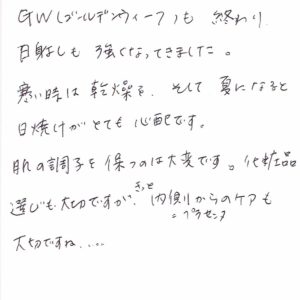 GW(ゴールデンウィーク)も 終わり
日射しも 強くなってきました。
寒い時は 乾燥を、そして 夏になると
日焼けが とても 心配です。
肌の調子を 保つのは大変です。化粧品
選びも 大切ですが、きっと 内側からのケアも
=プラセンタ
大切ですね....